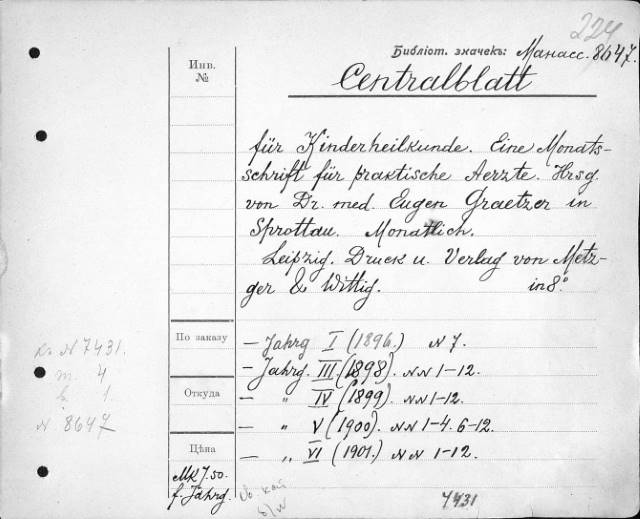 224
Библіот. значекъ: Манасс. 8647.
Инв.
№
Centralblatt
für Kinderheilkunde. Eine Monats-
schrift für praktische Aerzte. Hrsg.
von Dr. med. Eugen Graetzer in
Sprottau. Monatlich.
Leipzig. Druck u. Verlag von Metz-
ger & Wittig. in 8°.
По заказу
— Jahrg I (1896.) N 7.
— Jahrg. III. (1898). NN 1-12.
— „ IV (1899). NN 1-12.
— „ V (1900). NN 1-4. 6-12.
— „ VI (1901.) NN 1-12.
N 7431.
4
1
N 8647
Откуда
Цѣна
Mk 7.50.
f. Jahrg.
7431